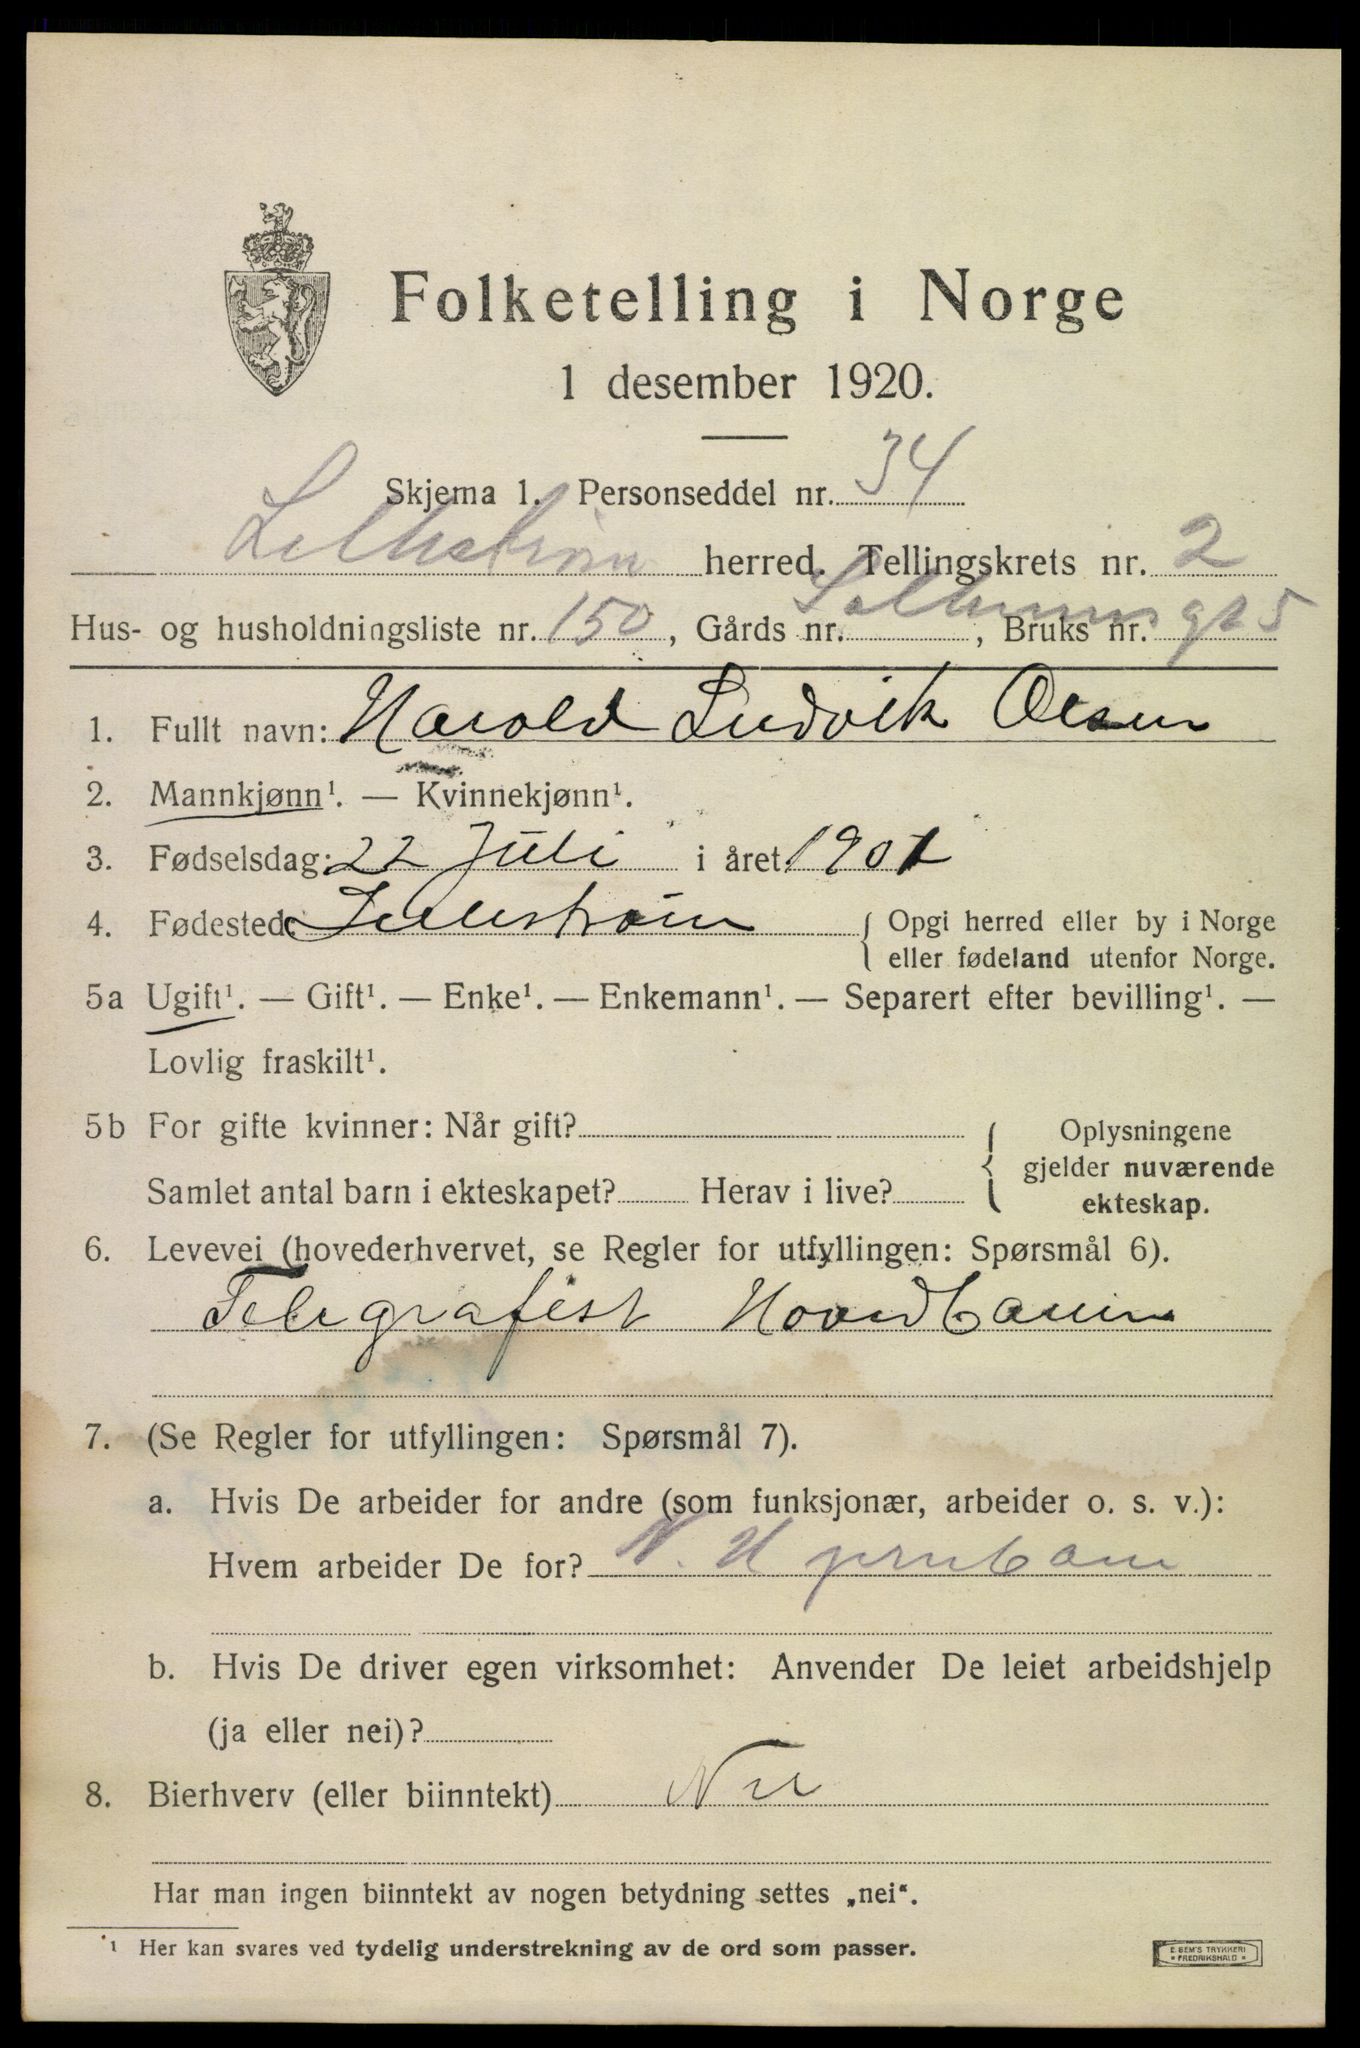 Folketelling i Norge
1 desember 1920.
Skjema 1. Personseddel nr. 34
Lillestrøm herred. Tellingskrets nr. 2
Hus- og husholdningsliste nr. 150, Gårds nr. , Bruks nr. gt 5
1. Fullt navn: Harold Ludvik Olsen
2. Mannkjønn¹. — Kvinnekjønn¹.
3. Fødselsdag: 22 Juli i året 1901
4. Fødested: Lillestrøm { Opgi herred eller by i Norge
eller fødeland utenfor Norge.
5a Ugift¹. — Gift¹. — Enke¹. — Enkemann¹. — Separert efter bevilling¹. —
Lovlig fraskilt¹.
5b For gifte kvinner: Når gift? { Oplysningene
gjelder nuværende
Samlet antal barn i ekteskapet? Herav i live?
ekteskap.
6. Levevei (hovederhvervet, se Regler for utfyllingen: Spørsmål 6).
Telegrafist Hovedbanen
7. (Se Regler for utfyllingen: Spørsmål 7).
a. Hvis De arbeider for andre (som funksjonær, arbeider o. s. v.):
Hvem arbeider De for? N. H
b. Hvis De driver egen virksomhet: Anvender De leiet arbeidshjelp
(ja eller nei)?
8. Bierhverv (eller biinntekt) Nei
Har man ingen biinntekt av nogen betydning settes „nei“.
¹ Her kan svares ved tydelig understrekning av de ord som passer.
E. SEM'S TRYKKERI
* FREDRIKSHALD *